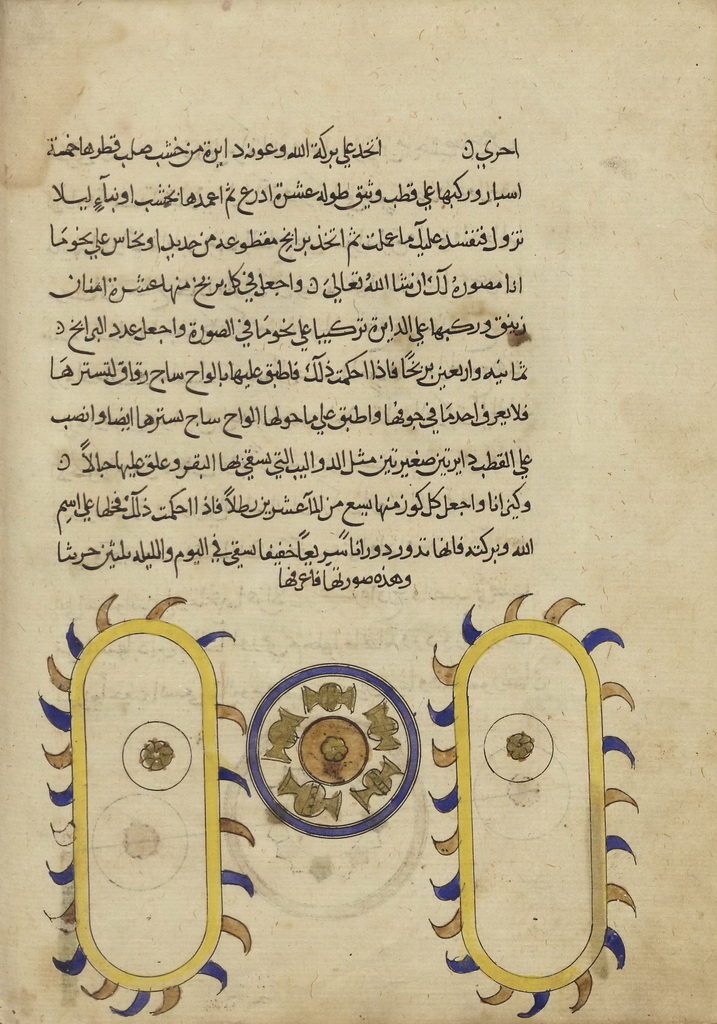 اخري ن اتخد علي بركة الله وعونه دايرة من خشب صلب قطرها خمسة
اسبار وركبها علي قطب وثيق طوله عشرة ادرع ثم اعمدها بخشب او نبآء ليلا
تزول فتفسد عليك ما عملت ثم اتخذ برابخ مقطوعه من حديد او نحاس علي نحو ما
انا مصوره لك ان شا الله تعالي ن واجعل في كل بربخ منها عشرة امنان
زيبق وركبها علي الدايرة تركيبا علي نحو ما في الصورة واجعل عدد البرابخ ن
ثمانيه واربعين بربخًا فاذا احكمت ذلك فاطبق عليها بالواح ساج رقاق لتسترها
فلا يعرف احد ما في جوفها واطبق علي ما حولها الواح ساج يسترها ايضا وانصب
علي القطب دايرتين صغيرتين مثل الدواليب التي يسقي بها البقر وعلق عليها حبالاً ن
وكيزانا واجعل كل كوز منها يسع من المآ عشرين رطلاً فاذا احكمت ذلك فخلها علي اسم
الله وبركته فانها تدور دورانا سريعاً خفيفا يسقي في اليوم والليله ثلثين جريبا
وهذه صورتها فاعرفها